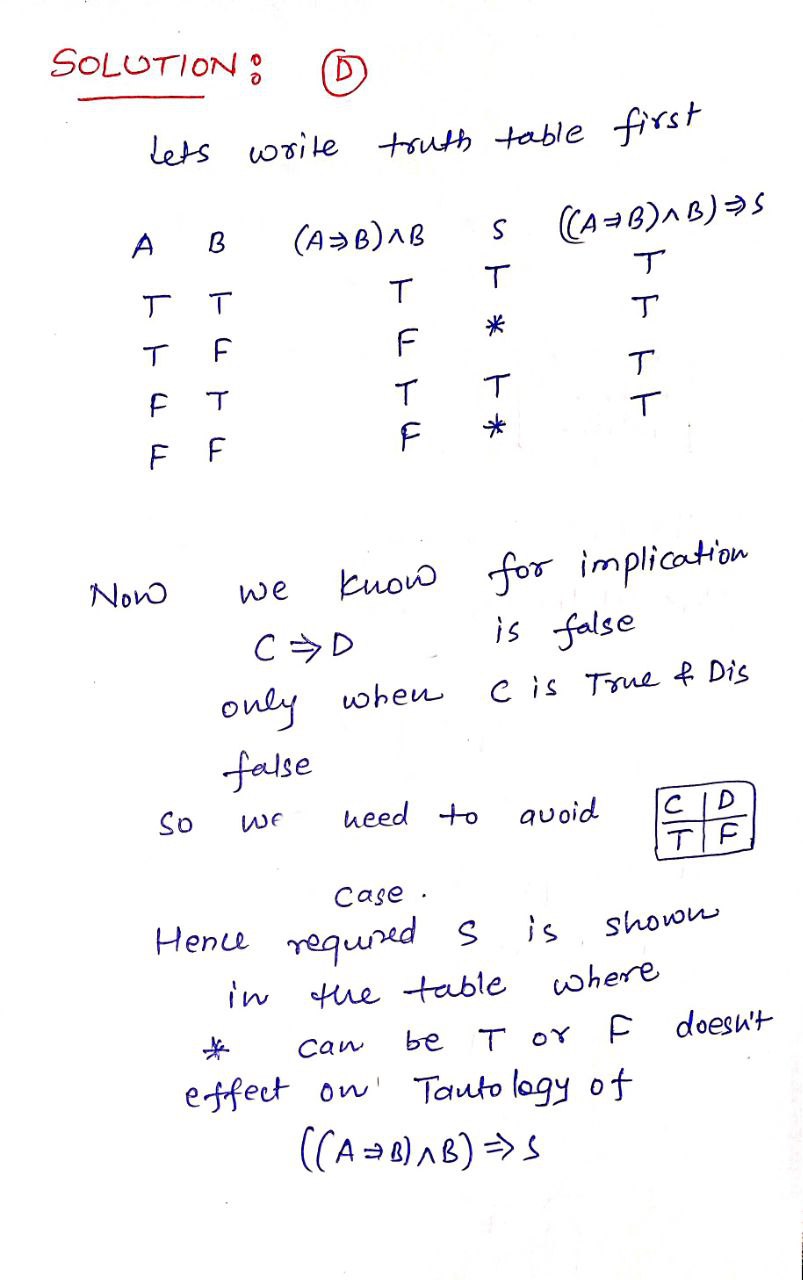 SOLUTION: D
Lets write truth table first
A B (A⇒B)∧B S ((A⇒B)∧B)⇒S
T T T T T
T F F * T
F T T T T
F F F * T
Now we know for implication
C⇒D is false
only when C is True & D is
false
So we need to avoid C D
T F
case.
Hence required S is shown
in the table where
* can be T or F doesn't
effect on Tautology of
((A⇒B)∧B)⇒S